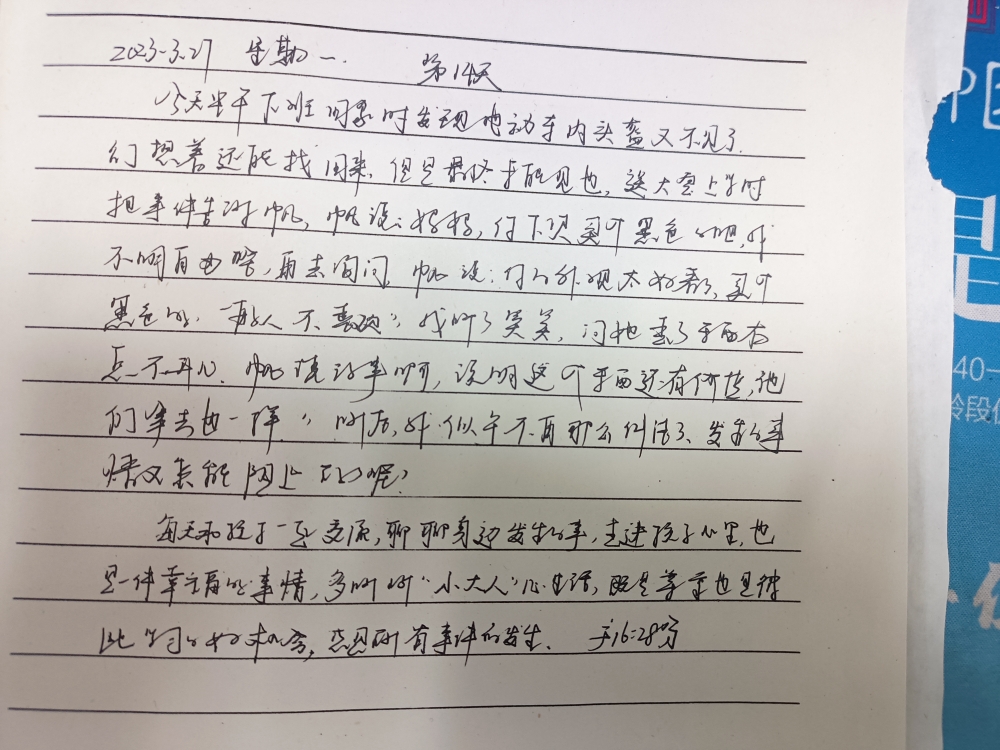 2023-3.27 星期一. 第14天
今天中午下班回家时发现电动车内头盔又不见了.
幻想着还能找回来, 但是最终于 见也, 送大宝上学时
把事件告诉帆, 帆说: 妈妈, 你下次买个黑色的吧, 我
不明白由, 再去询问, 帆说: 你的外观太好看了, 买个
黑色的, 别人不喜欢", 我听了笑笑, 问他丢了东西有
点不开心, 帆 说明这个东西还有价值, 他
们拿去也一样", 听后, 我似乎不再那么纠结了, 发生的事
情又岂能阻止了呢?
每天和孩子一起交流, 聊聊身边发生的事, 走进孩子心里, 也
是一件幸福的事情, 多听听"小大人"心里话, 既是尊重也是彼
此学习的好机会, 感恩所有事件的发生. 于16:28分
中国
40-
龄段